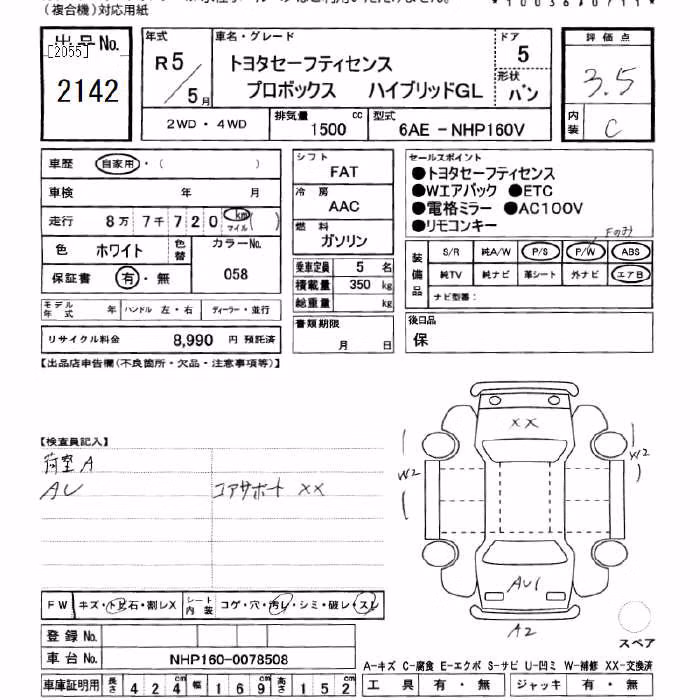 (複合機)対応用紙
出品No.
[2055]
2142
年式
R5/5月
車名・グレード
トヨタセーフティセンス
プロボックス ハイブリッドGL
ドア
5
形状
バン
2WD・4WD
排気量
1500 cc
型式
6AE-NHP160V
評価点
3.5
内装
C
車歴 自家用・( )
車検 年 月
走行 8万7千720 km マイル ( )
色 ホワイト 色替 カラーNo.
保証書 有・無 058
モデル年式 年 ハンドル 左・右 ディーラー・並行
リサイクル料金 8,990 円 預託済
シフト
FAT
冷房
AAC
燃料
ガソリン
乗車定員 5 名
積載量 350 kg
総重量 kg
書類期限
月 日
セールスポイント
●トヨタセーフティセンス
●Wエアバック ●ETC
●電格ミラー ●AC100V
●リモコンキー
Fのみ
装備品
S/R 純A/W P/S P/W ABS
純TV 純ナビ 革シート 外ナビ エアB
ナビ型番:
後日品
保
【出品店申告欄(不良箇所・欠品・注意事項等)】
【検査員記入】
荷室 A
AU コアサポート XX
XX
W2
W2
AU1
A2
スペア
FW キズ・トビ石・割レX シート内装 コゲ・穴・汚レ・シミ・破レ・スレ
登録No.
車台No. NHP160-0078508
車庫証明用 長さ 424 cm 幅 169 cm 高さ 152 cm
A-キズ C-腐食 E-エクボ S-サビ U-凹ミ W-補修 XX-交換済
工具 有・無 ジャッキ 有・無